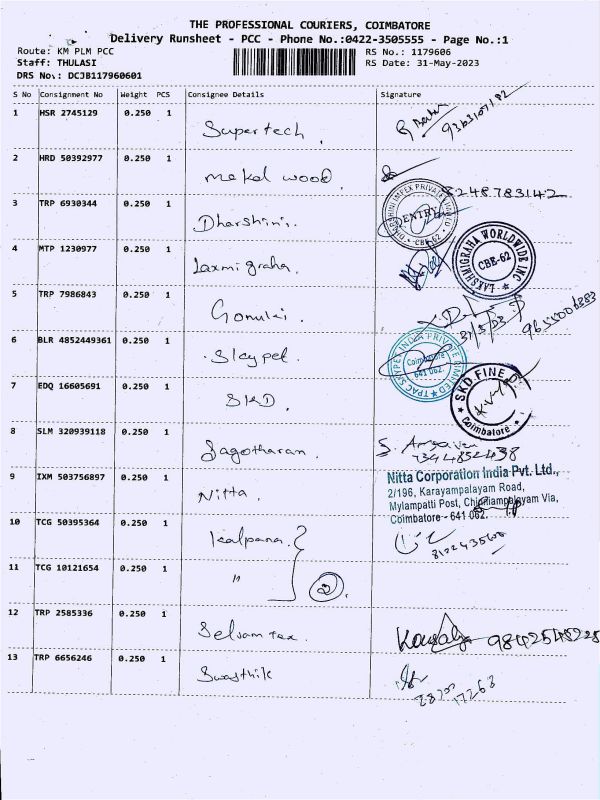 THE PROFESSIONAL COURIERS, COIMBATORE
Delivery Runsheet - PCC - Phone No.:0422-3505555 - Page No.:1
Route: KM PLM PCC
RS No.: 1179606
Staff: THULASI
RS Date: 31-May-2023
DRS No: DCJB117960601
S No Consignment No Weight PCS Consignee Details Signature
1 HSR 2745129 0.250 1 Supertech
9363107182
2 HRD 50392977 0.250 1 mekal wood
8248783142
3 TRP 6930344 0.250 1 Dharshini
DHARSHINI IMPEX PRIVATE LIMITED
ENTRY
CBE-62
4 MTP 1230977 0.250 1 Laxmi graha
LAKSHMIGRAHA WORLDWIDE INC
CBE-62
5 TRP 7986843 0.250 1
31/5/23
6 BLR 4852449361 0.250 1
INDIA PRIVATE LIMITED
Coimbatore
641 062.
7 EDQ 16605691 0.250 1 SKD
SKD FINE
Coimbatore
8 SLM 320939118 0.250 1 Jagotharan
9 IXM 503756897 0.250 1 Nitta
Nitta Corporation India Pvt. Ltd.,
2/196, Karayampalayam Road,
Mylampatti Post, Chinniampalayam Via,
Coimbatore - 641 062.
10 TCG 50395364 0.250 1 kalpana
11 TCG 10121654 0.250 1 "
2
12 TRP 2585336 0.250 1 Selvam tex
13 TRP 6656246 0.250 1 Swasthik